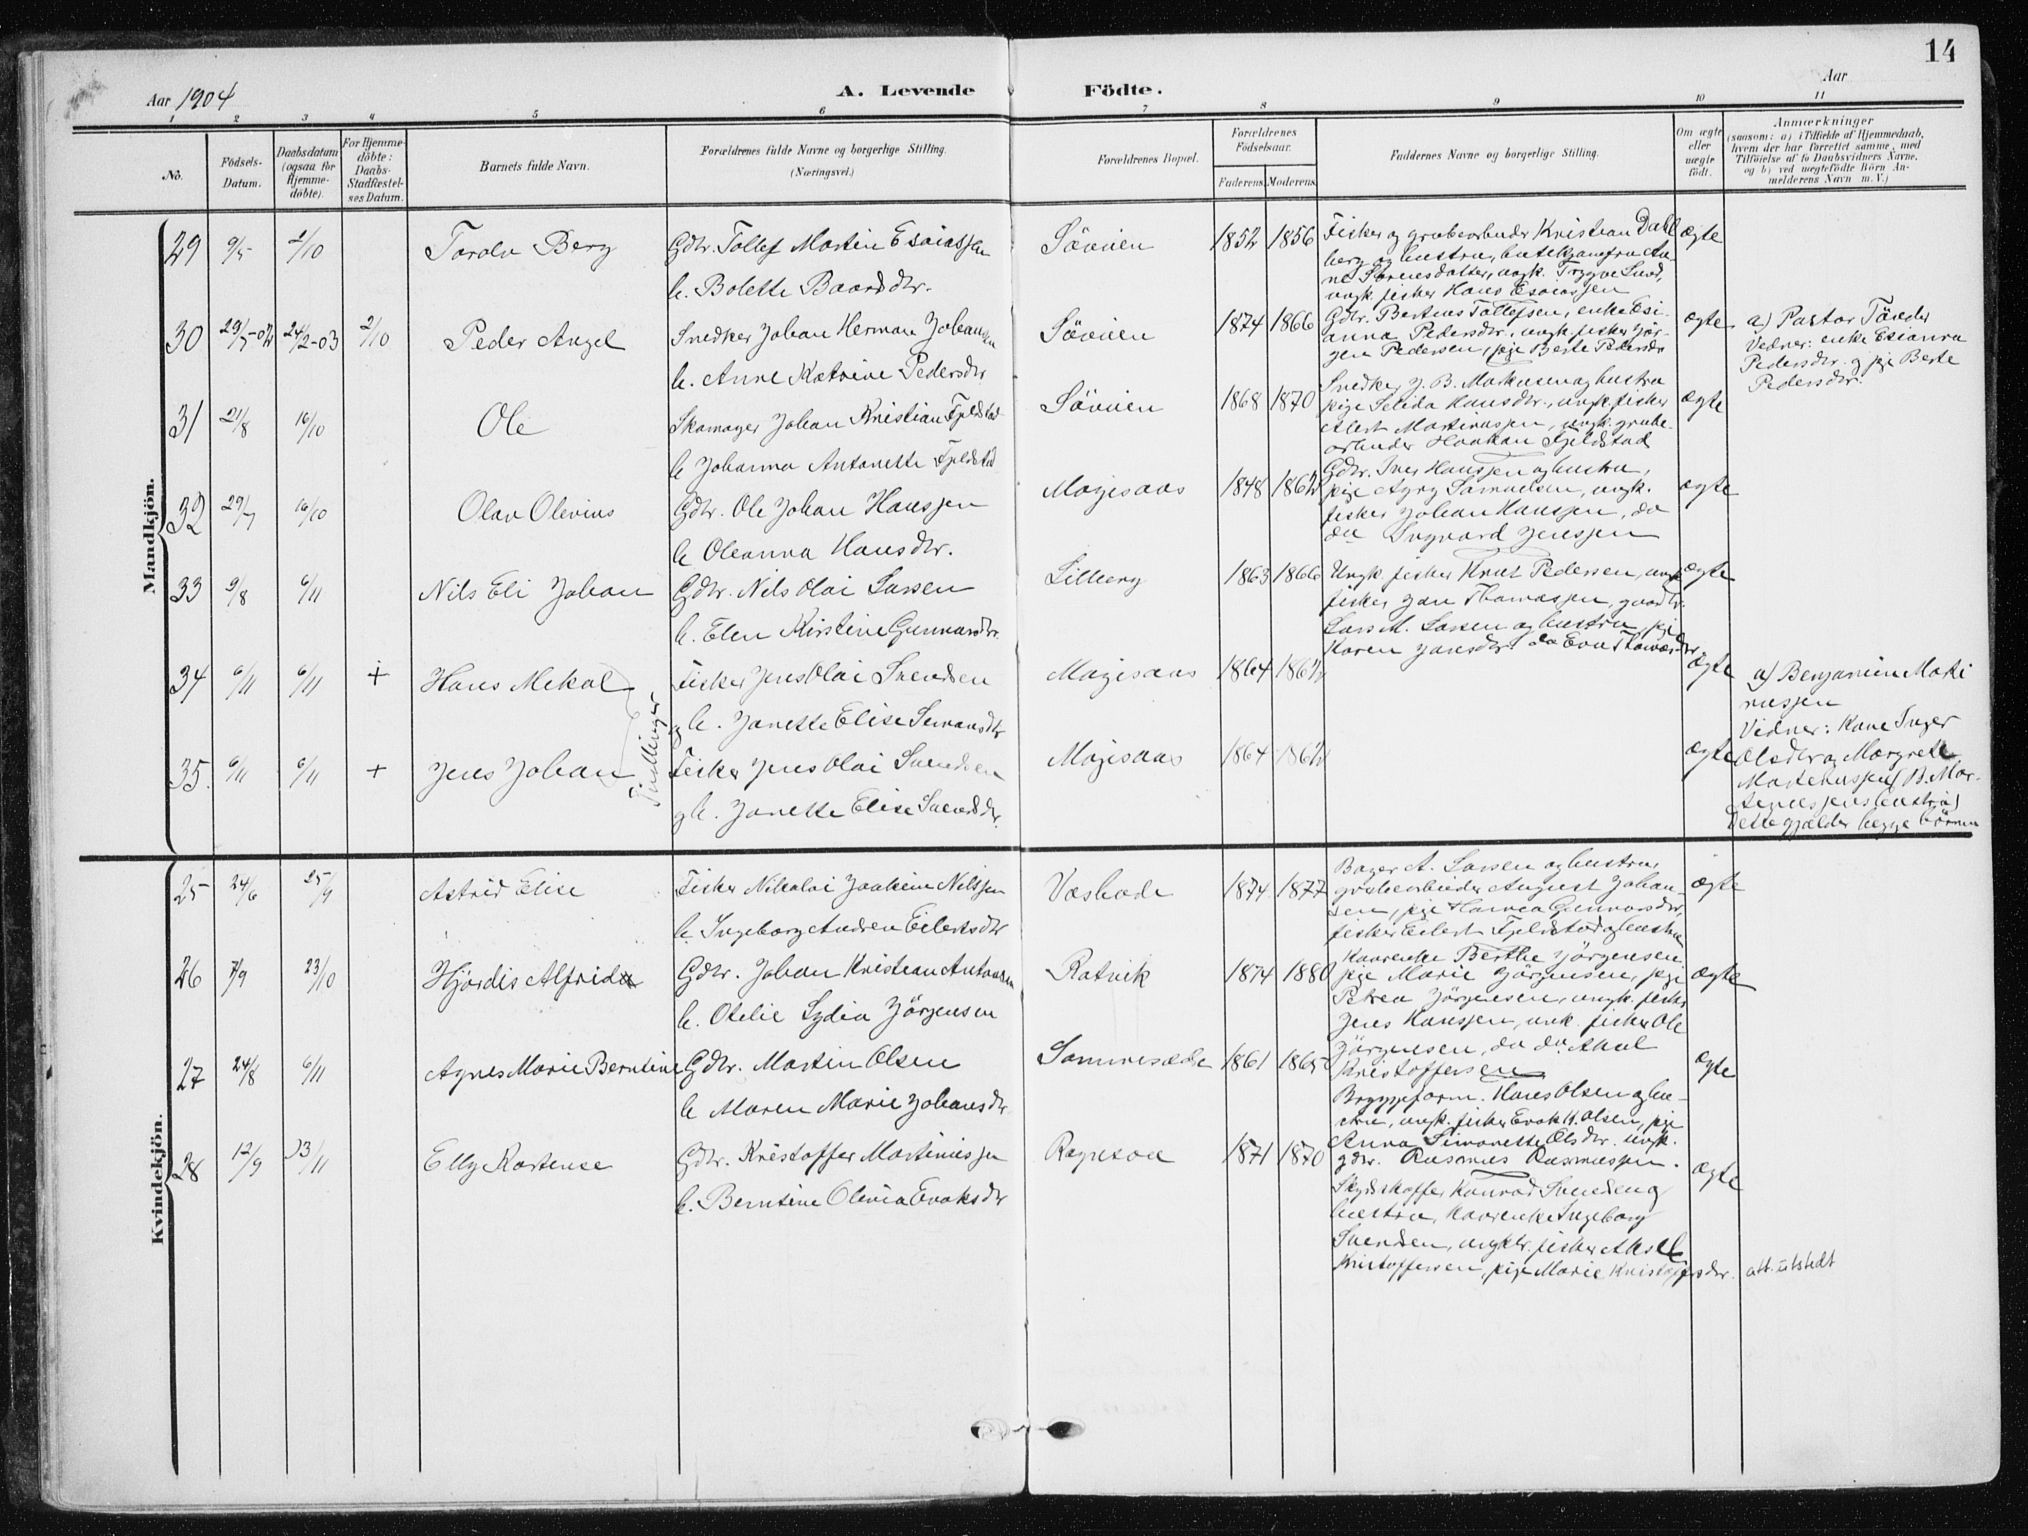 14
Aar 1904
A. Levende Födte.
Aar
1 2 3 4 5 6 7 8 9 10 11
No.
Födsels-
Datum.
Daabsdatum
(ogsaa for
Hjemme-
döbte).
For Hjemme-
döbte:
Daabs-
Stadfæstel-
ses Datum.
Barnets fulde Navn.
Forældrenes fulde Navne og borgerlige Stilling.
(Næringsvei.)
Forældrenes Bopæl.
Forældrenes
Födselsaar.
Faderens. Moderens.
Faddernes Navne og borgerlige Stilling.
Om ægte
eller
uægte
födt.
Anmærkninger
(saasom: a) i Tilfælde af Hjemmedaab,
hvem der har forrettet samme, med
Tilföielse af to Daabsvidners Navne,
og b) ved uægtefödte Börn An-
melderens Navn m. V.)
Mandkjön.
29 9/5 2/10 Torolv Berg
Gdbr. Tollef Martin Esaiassen
h. Bolette Baardsdtr.
Sövien 1852 1856
Fisker og grubearbeider Kristian Dahl
berg og hustru,
ungk. Trygve Lund,
ungk. fisker Hans Esaiassen
ægte
30 29/7-02 24/2-03 2/10 Peder Angel
Snedker Johan Herman Johansen
h. Anne Katrine Pedersdtr
Sövien 1874 1866
Gdbr. Berteus Tollefsen, enke Esi-
anna Pedersdtr., ungk. fisker Jör-
gen Pedersen, pige Berte Pedersdtr
ægte
a) Pastor
Vidner: enke Esianna
Pedersdtr. og pige Berte
Pedersdtr.
31 21/8 16/10 Ole
Skomager Johan Kristian Fjeldstad
h Johanna Antonette Fjeldstad
Sövien 1868 1870
Snedker J. B. Markusen og hustru
pige Selida Hansdtr., ungk. fisker
Albert Martinussen, ungk. grube-
arbeider Haakon Fjeldstad
ægte
32 29/7 16/10 Olav Olevius
Gdbr. Ole Johan Hanssen
h Oleanna Hansdtr.
Mazisaas 1848 1862
Gdbr. Iver Hanssen og hustru,
pige Agny Samuelsen, ungk.
fisker Johan Hanssen, do
do Ingvard Jenssen
ægte
33 9/8 6/11 Nils Eli Johan
Gdbr. Nils Olai Larsen
h. Elen Kirstine Gunnarsdtr.
Lilberg 1863 1866
Ungk. fisker Knut Pedersen, ungk
fisker Jan Thomassen, gaardbr.
Lars M. Larsen og hustru, pige
Karen Jansdtr. do Eva Thomasdtr.
ægte
34 6/11 6/11 + Hans Mekal
Tvillinger
Fisker Jens Olai Svendsen
og h. Janette Elise Simonsdtr
Mazisaas 1864 1862
ægte
a) Benjamin Marti
nussen
Vidner: Kone Inger
Olsdtr og Margrete
Martinussen (B. Mar-
tinussens hustru)
Dette gjælder begge börnene
35. 6/11 6/11 + Jens Johan
Fisker Jens Olai Svendsen
og h. Janette Elise Svendsdtr.
Mazisaas 1864 1862
ægte
Kvindekjön.
25 24/6 25/9 Astrid Elise
Fisker Nikolai Joakim Nilssen
h. Ingeborg Andrea Eilertsdtr
Vasbode 1874 1877
Bager A. Larsen og hustru,
grubearbeider August Johan-
sen, pige Hanna Gunnarsdtr,
fisker Eilert Fjeldstad og hustru
ægte
26 7/9 23/10 Hjördis Alfrida
Gdbr. Johan Kristian Antonsen
h. Otelie Lydia Jörgensen
Ratvik 1874 1880
Kaarenke Berthe Jörgensen
pige Marie Jörgensen, pige
Petrea Jörgensen, ungk. fisker
Jens Hanssen, unk. fisker Ole
Jörgensen, do do Aksel
Kristoffersen
ægte
27 24/8 6/11 Agnes Marie Berntine
Gdbr. Martin Olsen
h Maren Marie Johansdtr.
Sommesæde 1861 1865
Bryggeform. Hans Olsen og hu-
stru, ungk. fisker Evak H. Olsen, pige
Anna Simonette Olsdtr. ungk.
gdbr. Rasmus Rasmussen.
ægte
28 12/9 13/11 Elly Kortense
Gdbr. Kristoffer Martinussen
h. Berntine Olevia Evaksdtr
1871 1870
Skydsskaffer Konrad Svendsen og
hustru, Kaarenke Ingeborg
Svendsen, ungkr. fisker Aksel
Kristoffersen, pige Marie Kristoffersdtr.
ægte
att. utstedt